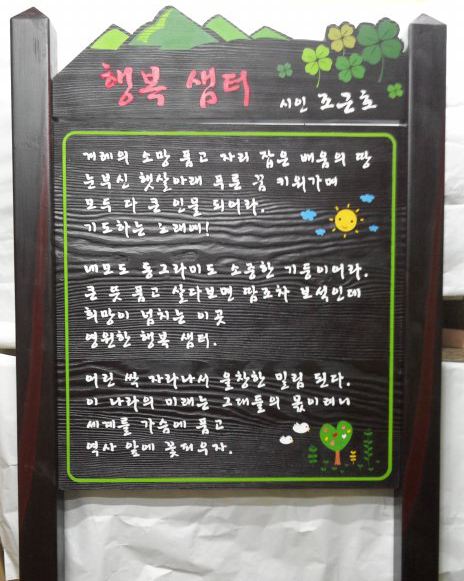 행복 샘터
시인 조근호
겨레의 소망 품고 자리 잡은 배움의 땅
눈부신 햇살아래 푸른 꿈 키워가며
모두 다 큰 인물 되어라.
기도하는 노래여!
네모도 동그라미도 소중한 기둥이어라.
큰 뜻 품고 살다보면 땀조차 보석인데
희망이 넘치는 이곳
영원한 행복 샘터.
어린 싹 자라나서 울창한 밀림 된다.
이 나라의 미래는 그대들의 몫이려니
세계를 가슴에 품고
역사 앞에 꽃피우자.